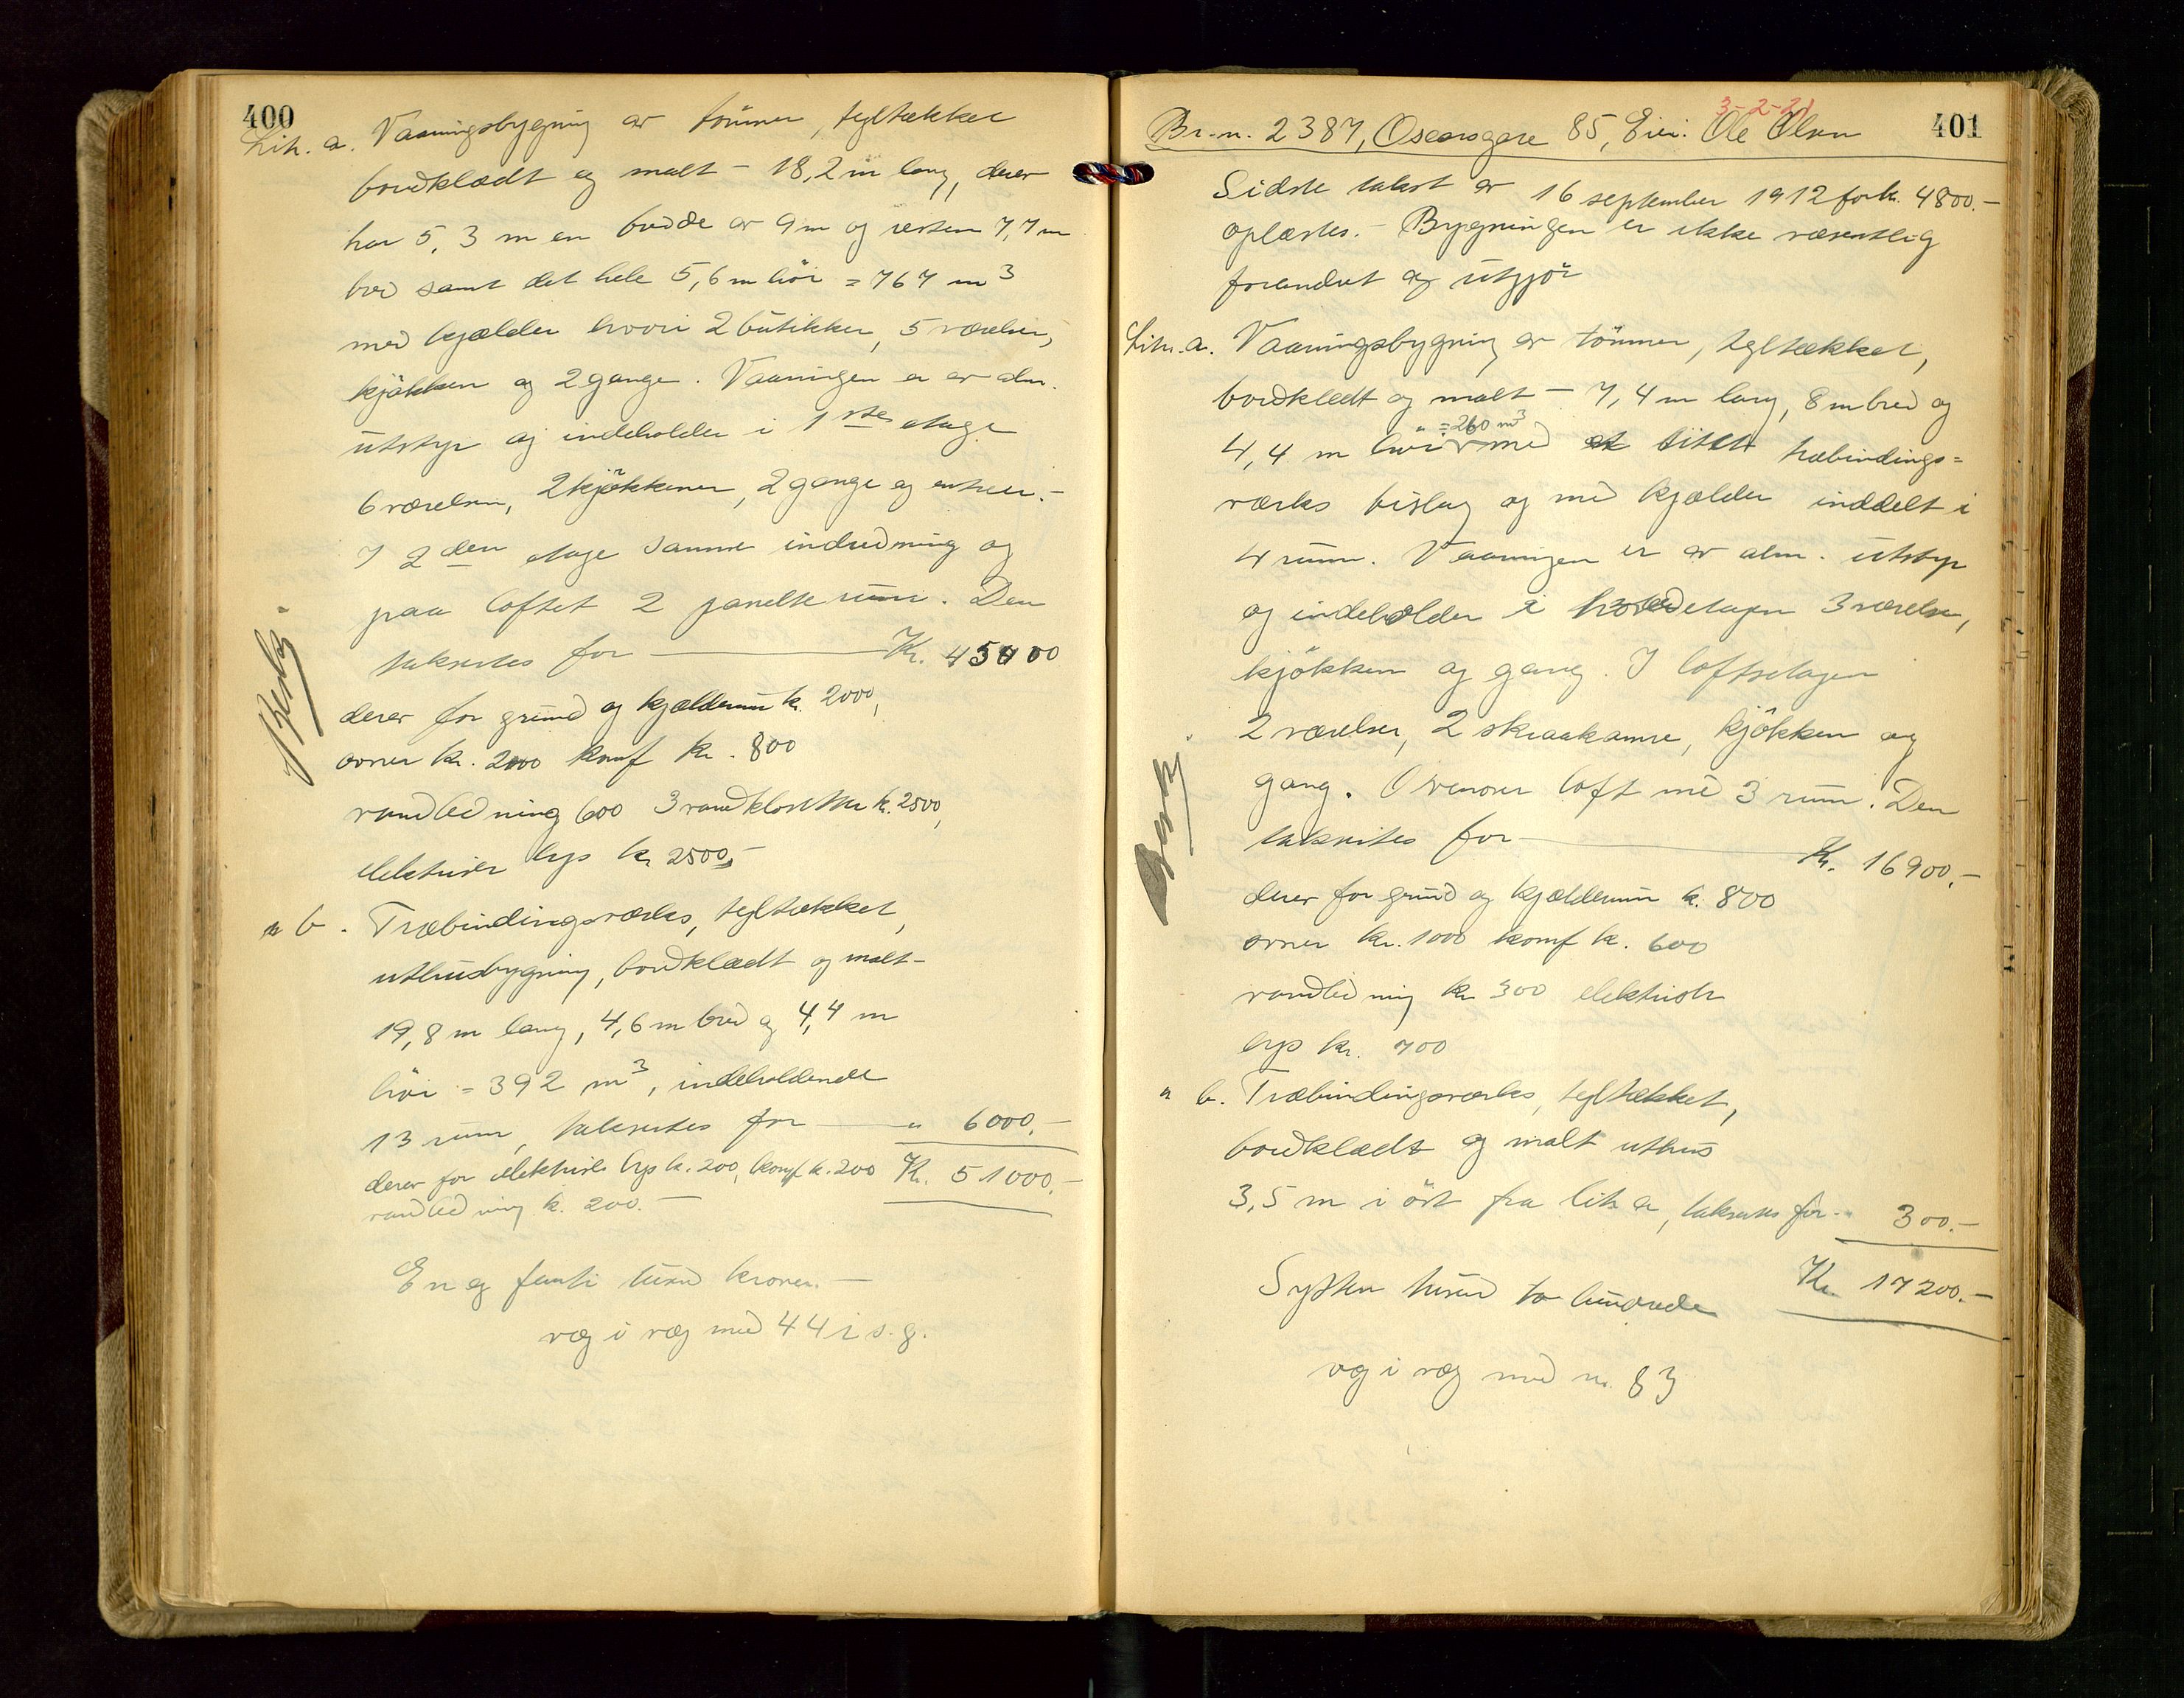 400
Litr. a. Vaaningsbygning av tömmer, tegltækket
bordklædt og malt – 18,2 m lang, derav
har 5,3 m en bredde av 9 m og resten 7,7 m
bred samt det hele 5,6 m höi = 767 m³
med kjælder hvori 2 butikker, 5 værelser,
kjökken og 2 gange. Vaaningen er av alm.
utstyr og indeholder i 1ste etage
6 værelser, 2 kjökkener, 2 gange og entreer. –
I 2den etage samme indredning og
paa loftet 2 panelte rum. Den
taksertes for Kr. 45000
derav for grund og kjælderrum kr. 2000,
ovner kr. 2000 komf kr. 800
vandledning 600 3 vandklosetter kr. 2500,
elektrisk lys kr 2500,-
" b. Træbindingsverks, tegltækket,
uthusbygning, bordklædt og malt –
19,8 m lang, 4,6 m bred og 4,4 m
höi = 392 m³, indeholdende
13 rum, taksertes for " 6000.-
derav for elektrisk lys kr. 200, komf kr. 200 Kr. 51000.-
vandledning kr. 200. –
En og femti tusend kroner. –
væg i væg med 44 i s. g.
Besig.
3-2-21
401
Br. n. 2387, Oscarsgate 85, Eier: Ole Olsen
Sidste takst av 16 september 1912 for kr. 4800.-
oplæstes. – Bygningen er ikke væsentlig
forandret og utgjör
Litr. a. Vaaningsbygning av tömmer, tegltækket,
bordklædt og malt – 7,4 m lang, 8 m bred og
= 260 m³
4,4 m höi med et litet træbindings=
verks bislag og med kjælder inddelt i
4 rum. Vaaningen er av alm. utstyr
og indeholder i hovedetagen 3 værelser,
kjökken og gang. I loftsetagen
2 værelser, 2 skraakamre, kjökken og
gang. Ovenover loft med 3 rum. Den
taksertes for Kr. 16900.-
derav for grund og kjælderrum kr. 800
ovner kr. 1000 komf kr. 600
vandledning kr 300 elektrisk
lys kr. 700
" b. Træbindingsverks, tegltækket,
bordklædt og malt uthus
3,5 m i öst fra litr a, taksertes for - " 300.-
Kr. 17200.-
Sytten tusend to hundrede
væg i væg med nr. 83
Besig.